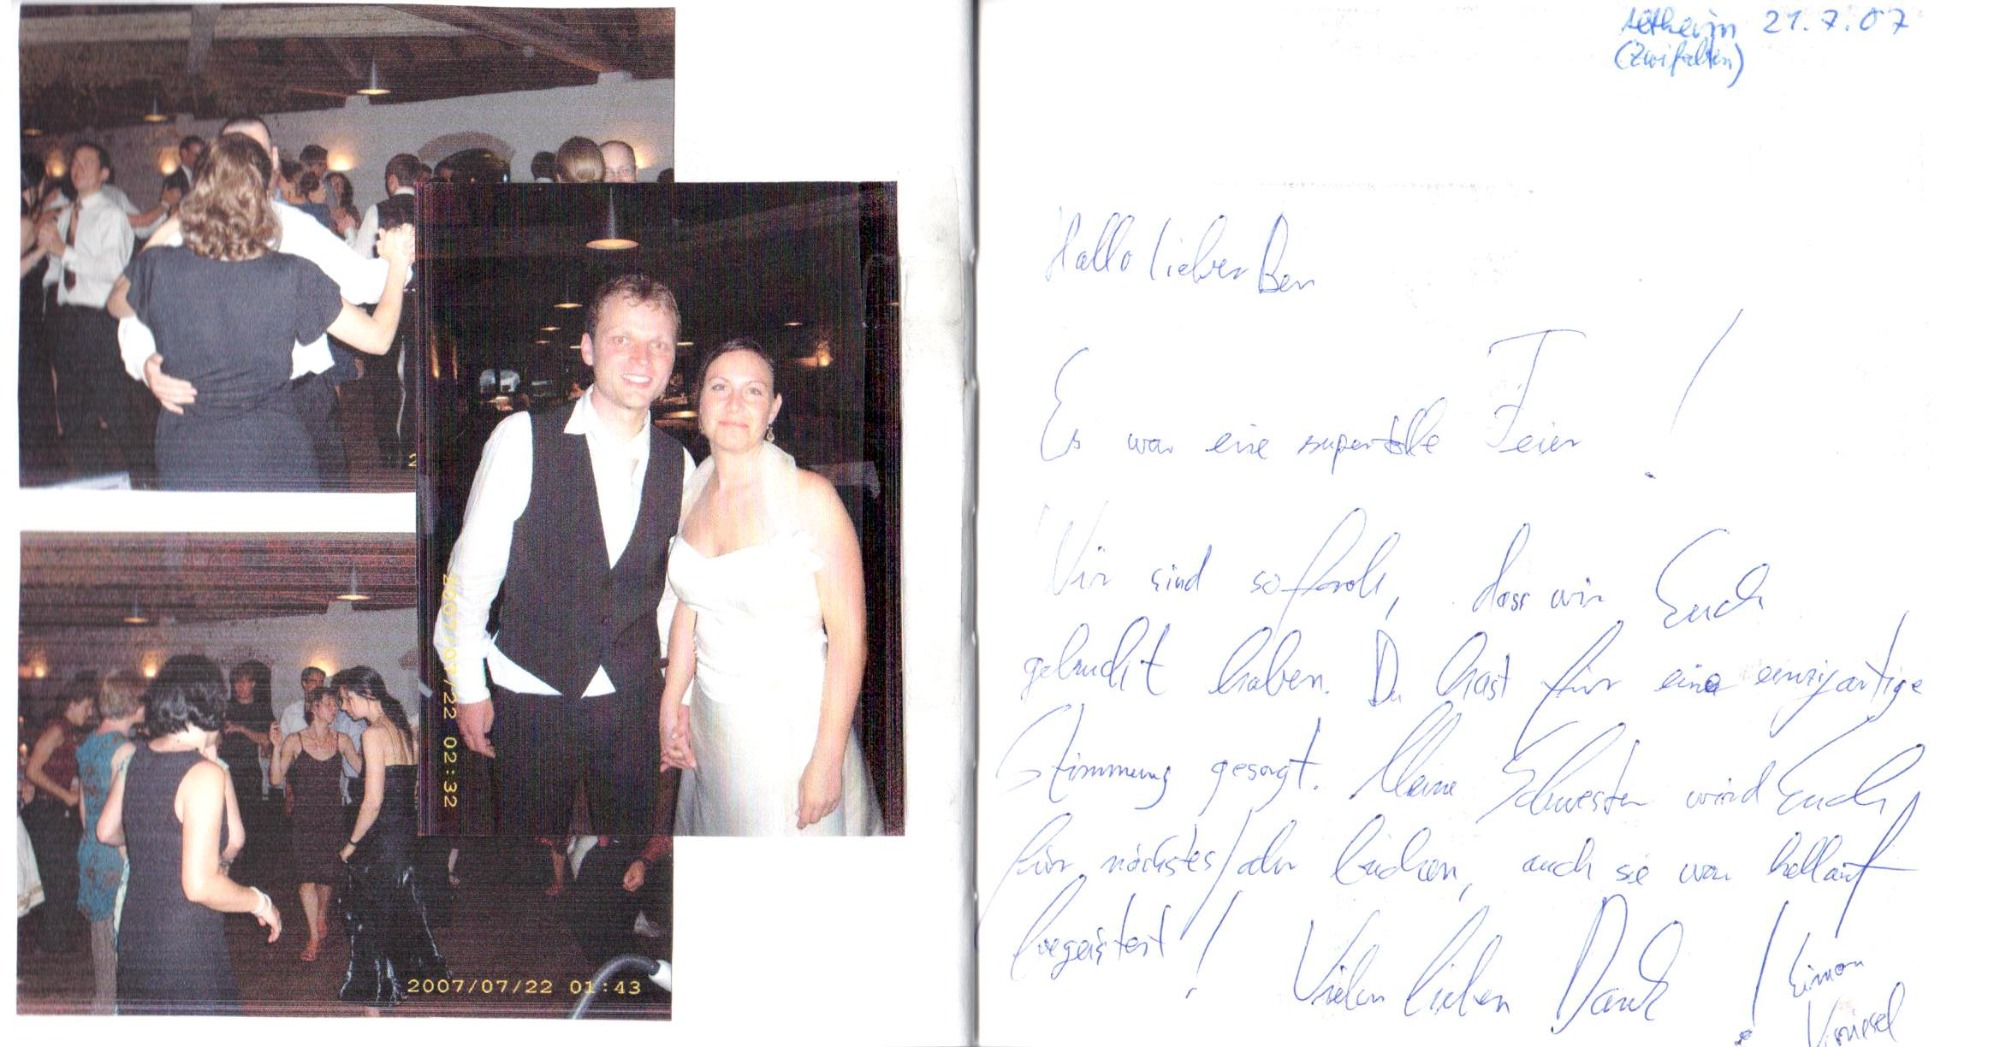 2007/07/22 02:32
2007/07/22 01:43
21.7.07
(Zwifalten)
Hallo lieber Ben
Es war eine supertolle Feier!
Wir sind so froh, dass wir Euch
gebucht haben. Du hast für eine einzigartige
Stimmung gesorgt. Meine Schwester wird Euch
für nächstes Jahr buchen, auch sie war hellauf
begeistert! Vielen lieben Dank!
Simon